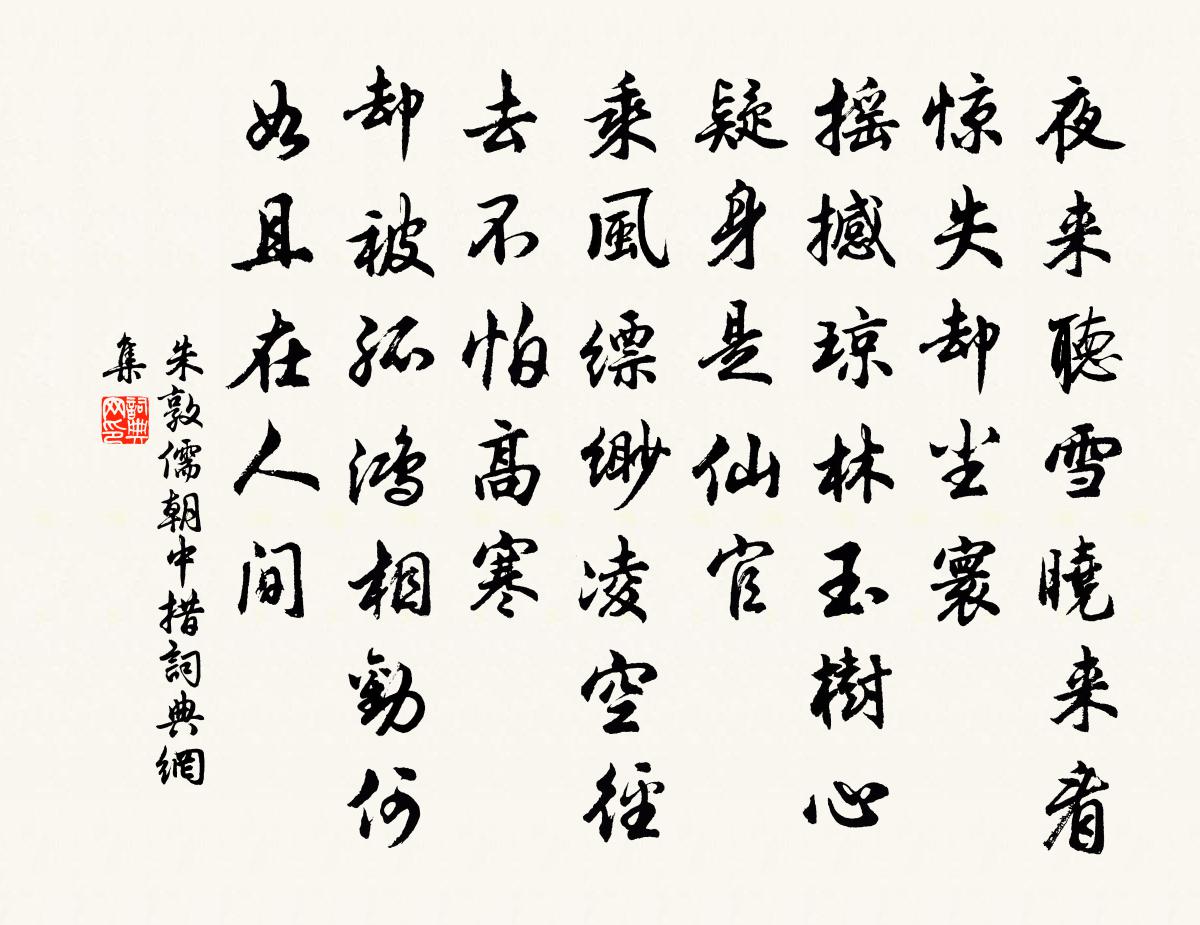 夜来聽雪曉来看
惊失却尘寰
摇撼琼林玉樹心
疑身是仙官
乘風缥缈凌空径
去不怕高寒
却被孤鸿相勸何
如且在人间
朱敦儒朝中措詞典網
集
詞典
网印